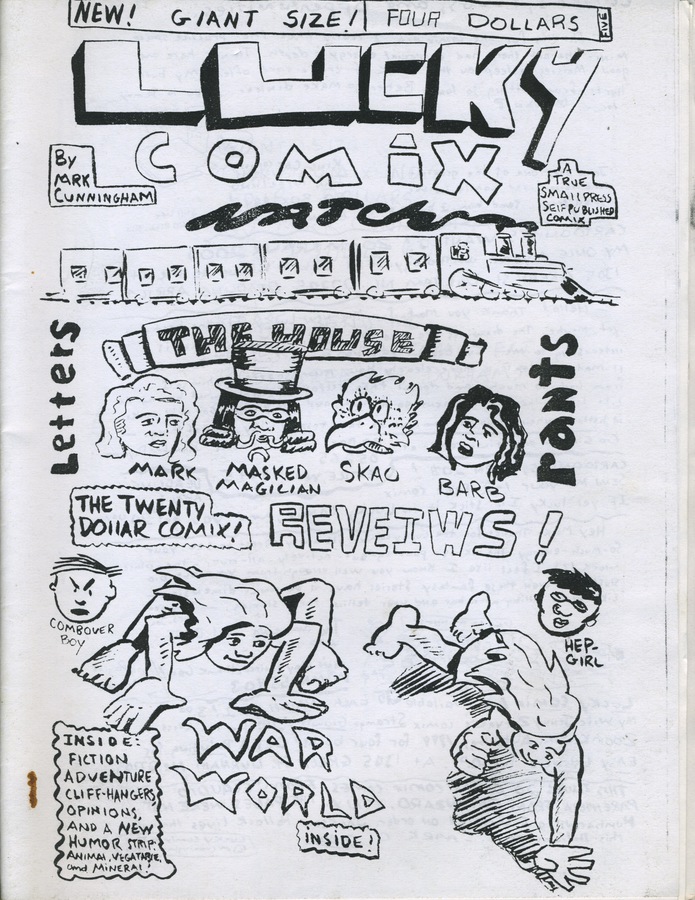 NEW! GIANT SIZE! FOUR DOLLARS FIVE
LUCKY
COMiX
By
MARK
CUNNINGHAM
A
TRUE
SMALL PRESS
SELF PUBLISHED
COMIX
WATCH
THE HOUSE
Letters
Pants
MARK
MASKED
MAGICIAN
SKAG
BARB
THE TWENTY
DOllAR COMIX!
REVEIWS!
COMBOVER
BOY
HEP-
GIRL
WAR
WORLD
INSIDE!
INSIDE:
FICTION
ADVENTURE
CLIFF-HANGERS
OPINIONS,
AND A NEW
HUMOR STRIP:
ANIMAL, VEGATABLE,
and MiNERAl!